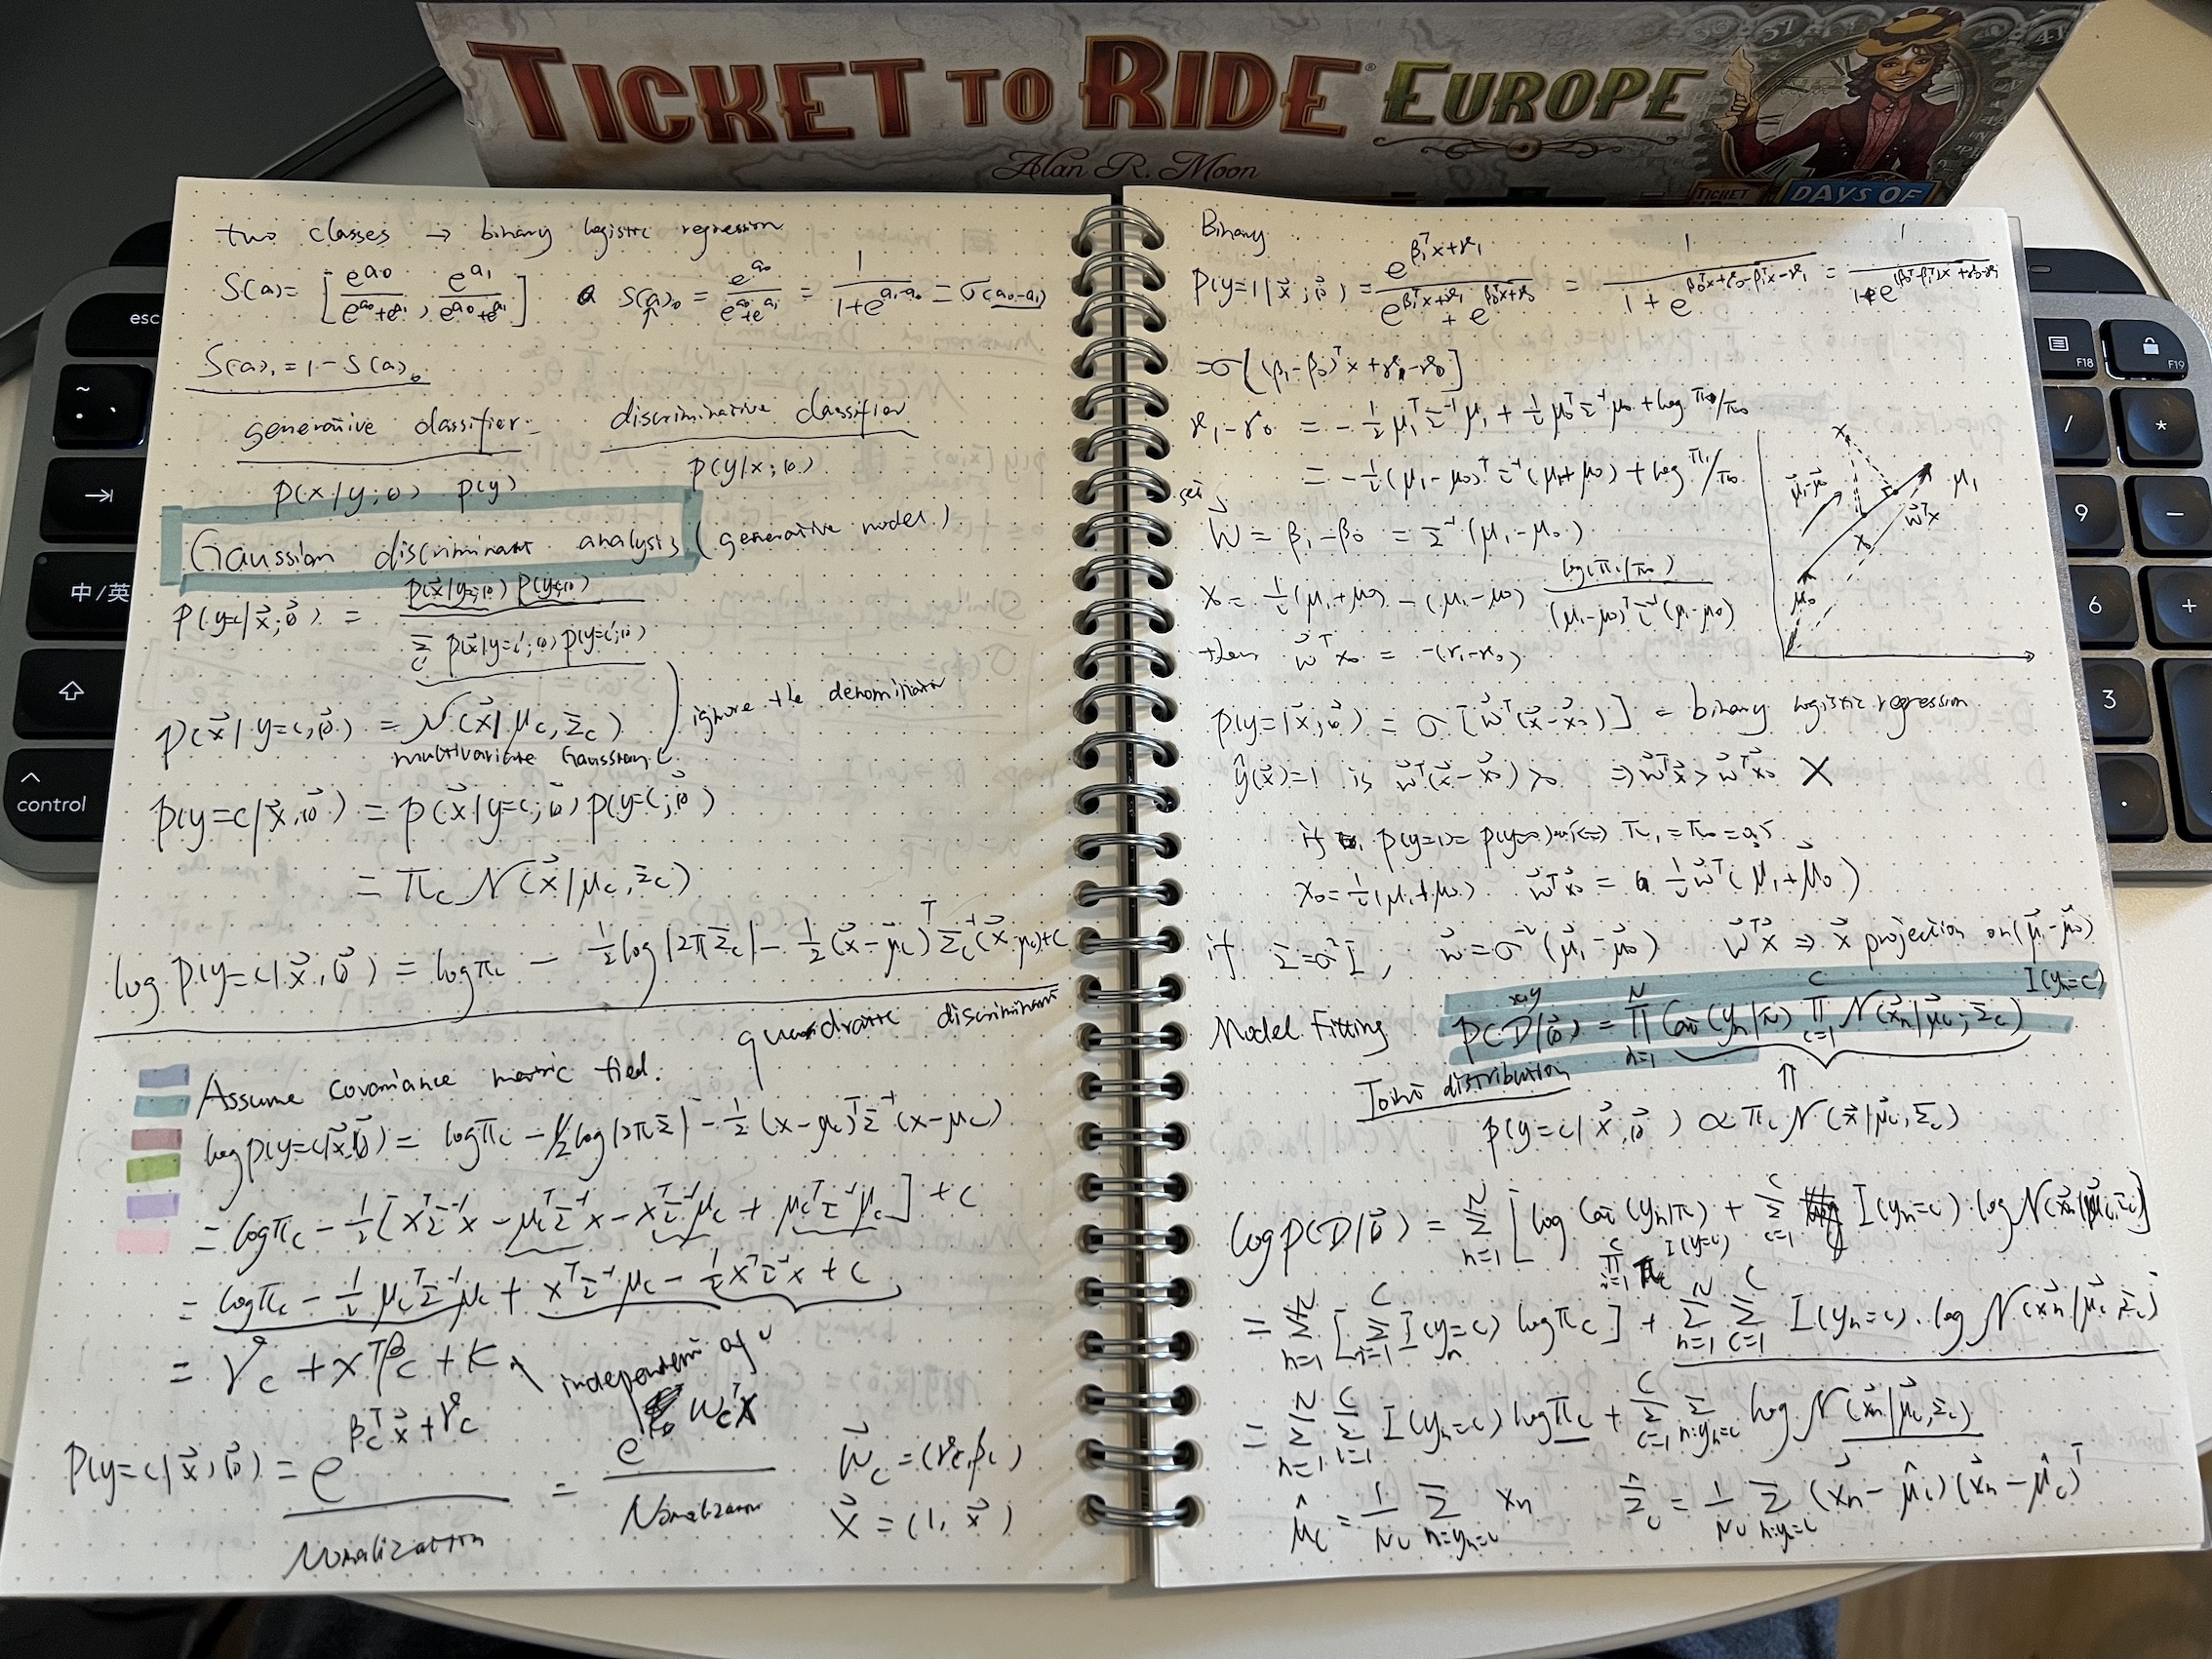 TICKET TO RIDE EUROPE
Alan R. Moon
TICKET
DAYS OF
two classes → binary logistic regression
S(a) = [e^{a0}/(e^{a0}+e^{a1}), e^{a1}/(e^{a0}+e^{a1})] S(a)_0 = e^{a0}/(e^{a0}+e^{a1}) = 1/(1+e^{a1-a0}) = σ(a0-a1)
S(a)_1 = 1 - S(a)_0
generative classifier discriminative classifier
p(x|y;θ) p(y) p(y|x;θ)
Gaussian discriminant analysis (generative model)
p(y=c|x⃗;θ⃗) = p(x⃗|y=c;θ) p(y=c;θ) / Σ_{c'} p(x⃗|y=c';θ) p(y=c';θ)
p(x⃗|y=c,θ⃗) = N(x⃗|μc,Σc) ignore the denominator
multivariate Gaussian
p(y=c|x⃗,θ⃗) = p(x⃗|y=c;θ⃗) p(y=c;θ⃗)
= πc N(x⃗|μc,Σc)
log p(y=c|x⃗,θ⃗) = log πc - 1/2 log|2πΣc| - 1/2 (x⃗-μ⃗c)^T Σc^{-1} (x⃗-μc)+c
quadratic discriminant
Assume covariance matric tied.
log p(y=c|x,θ⃗) = log πc - 1/2 log|2πΣ| - 1/2 (x-μc)^T Σ^{-1} (x-μc)
= log πc - 1/2 [x^TΣ^{-1}x - μc^TΣ^{-1}x - x^TΣ^{-1}μc + μc^TΣ^{-1}μc] + c
= log πc - 1/2 μc^TΣ^{-1}μc + x^TΣ^{-1}μc - 1/2 x^TΣ^{-1}x + c
= γc + x^Tβc + K independent of
p(y=c|x⃗,θ⃗) = e^{βc^T x⃗ + γc} / Normalization = e^{wc^T x} / Normalization w⃗c = (γc,βc)
x⃗ = (1, x⃗)
Binary
p(y=1|x⃗;θ⃗) = e^{β1^T x+γ1} / (e^{β1^T x+γ1} + e^{β0^T x+γ0}) = 1/(1+e^{β0^T x+γ0-β1^T x-γ1}) = 1/(1+e^{(β0^T-β1^T)x+γ0-γ1})
= σ[(β1-β0)^T x + γ1-γ0]
γ1-γ0 = -1/2 μ1^TΣ^{-1}μ1 + 1/2 μ0^TΣ^{-1}μ0 + log π1/π0
= -1/2 (μ1-μ0)^T Σ^{-1} (μ1+μ0) + log π1/π0
set
w⃗ = β1-β0 = Σ^{-1}(μ1-μ0)
x0 = 1/2 (μ1+μ0) - (μ1-μ0) log(π1/π0) / (μ1-μ0)^TΣ^{-1}(μ1-μ0)
then w⃗^T x0 = -(γ1-γ0)
x
μ⃗1-μ⃗0
μ1
w⃗^T x
x0
μ0
p(y=1|x⃗;θ⃗) = σ[w⃗^T(x⃗-x⃗0)] = binary logistic regression
ŷ(x⃗)=1 is w⃗^T(x⃗-x⃗0) >0 ⇒ w⃗^T x⃗ > w⃗^T x0 X
if p(y=1) = p(y=0) π1 = π0 = 0.5
x0 = 1/2 (μ1+μ0) w⃗^T x⃗0 = 1/2 w⃗^T(μ⃗1+μ⃗0)
if Σ=σ²I, w⃗ = σ^{-2}(μ⃗1-μ⃗0) w⃗^T x⃗ ⇒ x⃗ projection on (μ⃗1-μ⃗0)
Model Fitting p(D|θ⃗) = ∏_{n=1}^{N} Cat(yn|π) ∏_{c=1}^{C} N(x⃗n|μ⃗c,Σc)^{I(yn=c)}
x,y
Joint distribution ⇑
p(y=c|x⃗,θ⃗) ∝ πc N(x⃗|μ⃗c,Σc)
log p(D|θ⃗) = Σ_{n=1}^{N} [log Cat(yn|π) + Σ_{c=1}^{C} I(yn=c) · log N(x⃗n|μ⃗c,Σc)]
∏_{i=1}^{C} πc^{I(y=c)}
= Σ_{n=1}^{N} [Σ_{i=1}^{C} I(yn=c) log πc] + Σ_{n=1}^{N} Σ_{c=1}^{C} I(yn=c) · log N(x⃗n|μ⃗c,Σc)
= Σ_{n=1}^{N} Σ_{i=1}^{C} I(yn=c) log πc + Σ_{c=1}^{C} Σ_{n:yn=c} log N(x⃗n|μ⃗c,Σc)
μ̂c = 1/Nc Σ_{n:yn=c} xn Σ̂c = 1/Nc Σ_{n:yn=c} (x⃗n-μ̂c)(x⃗n-μ̂c)^T
esc
~
中/英
control
^
F18
F19
/
*
9
-
6
+
3
.